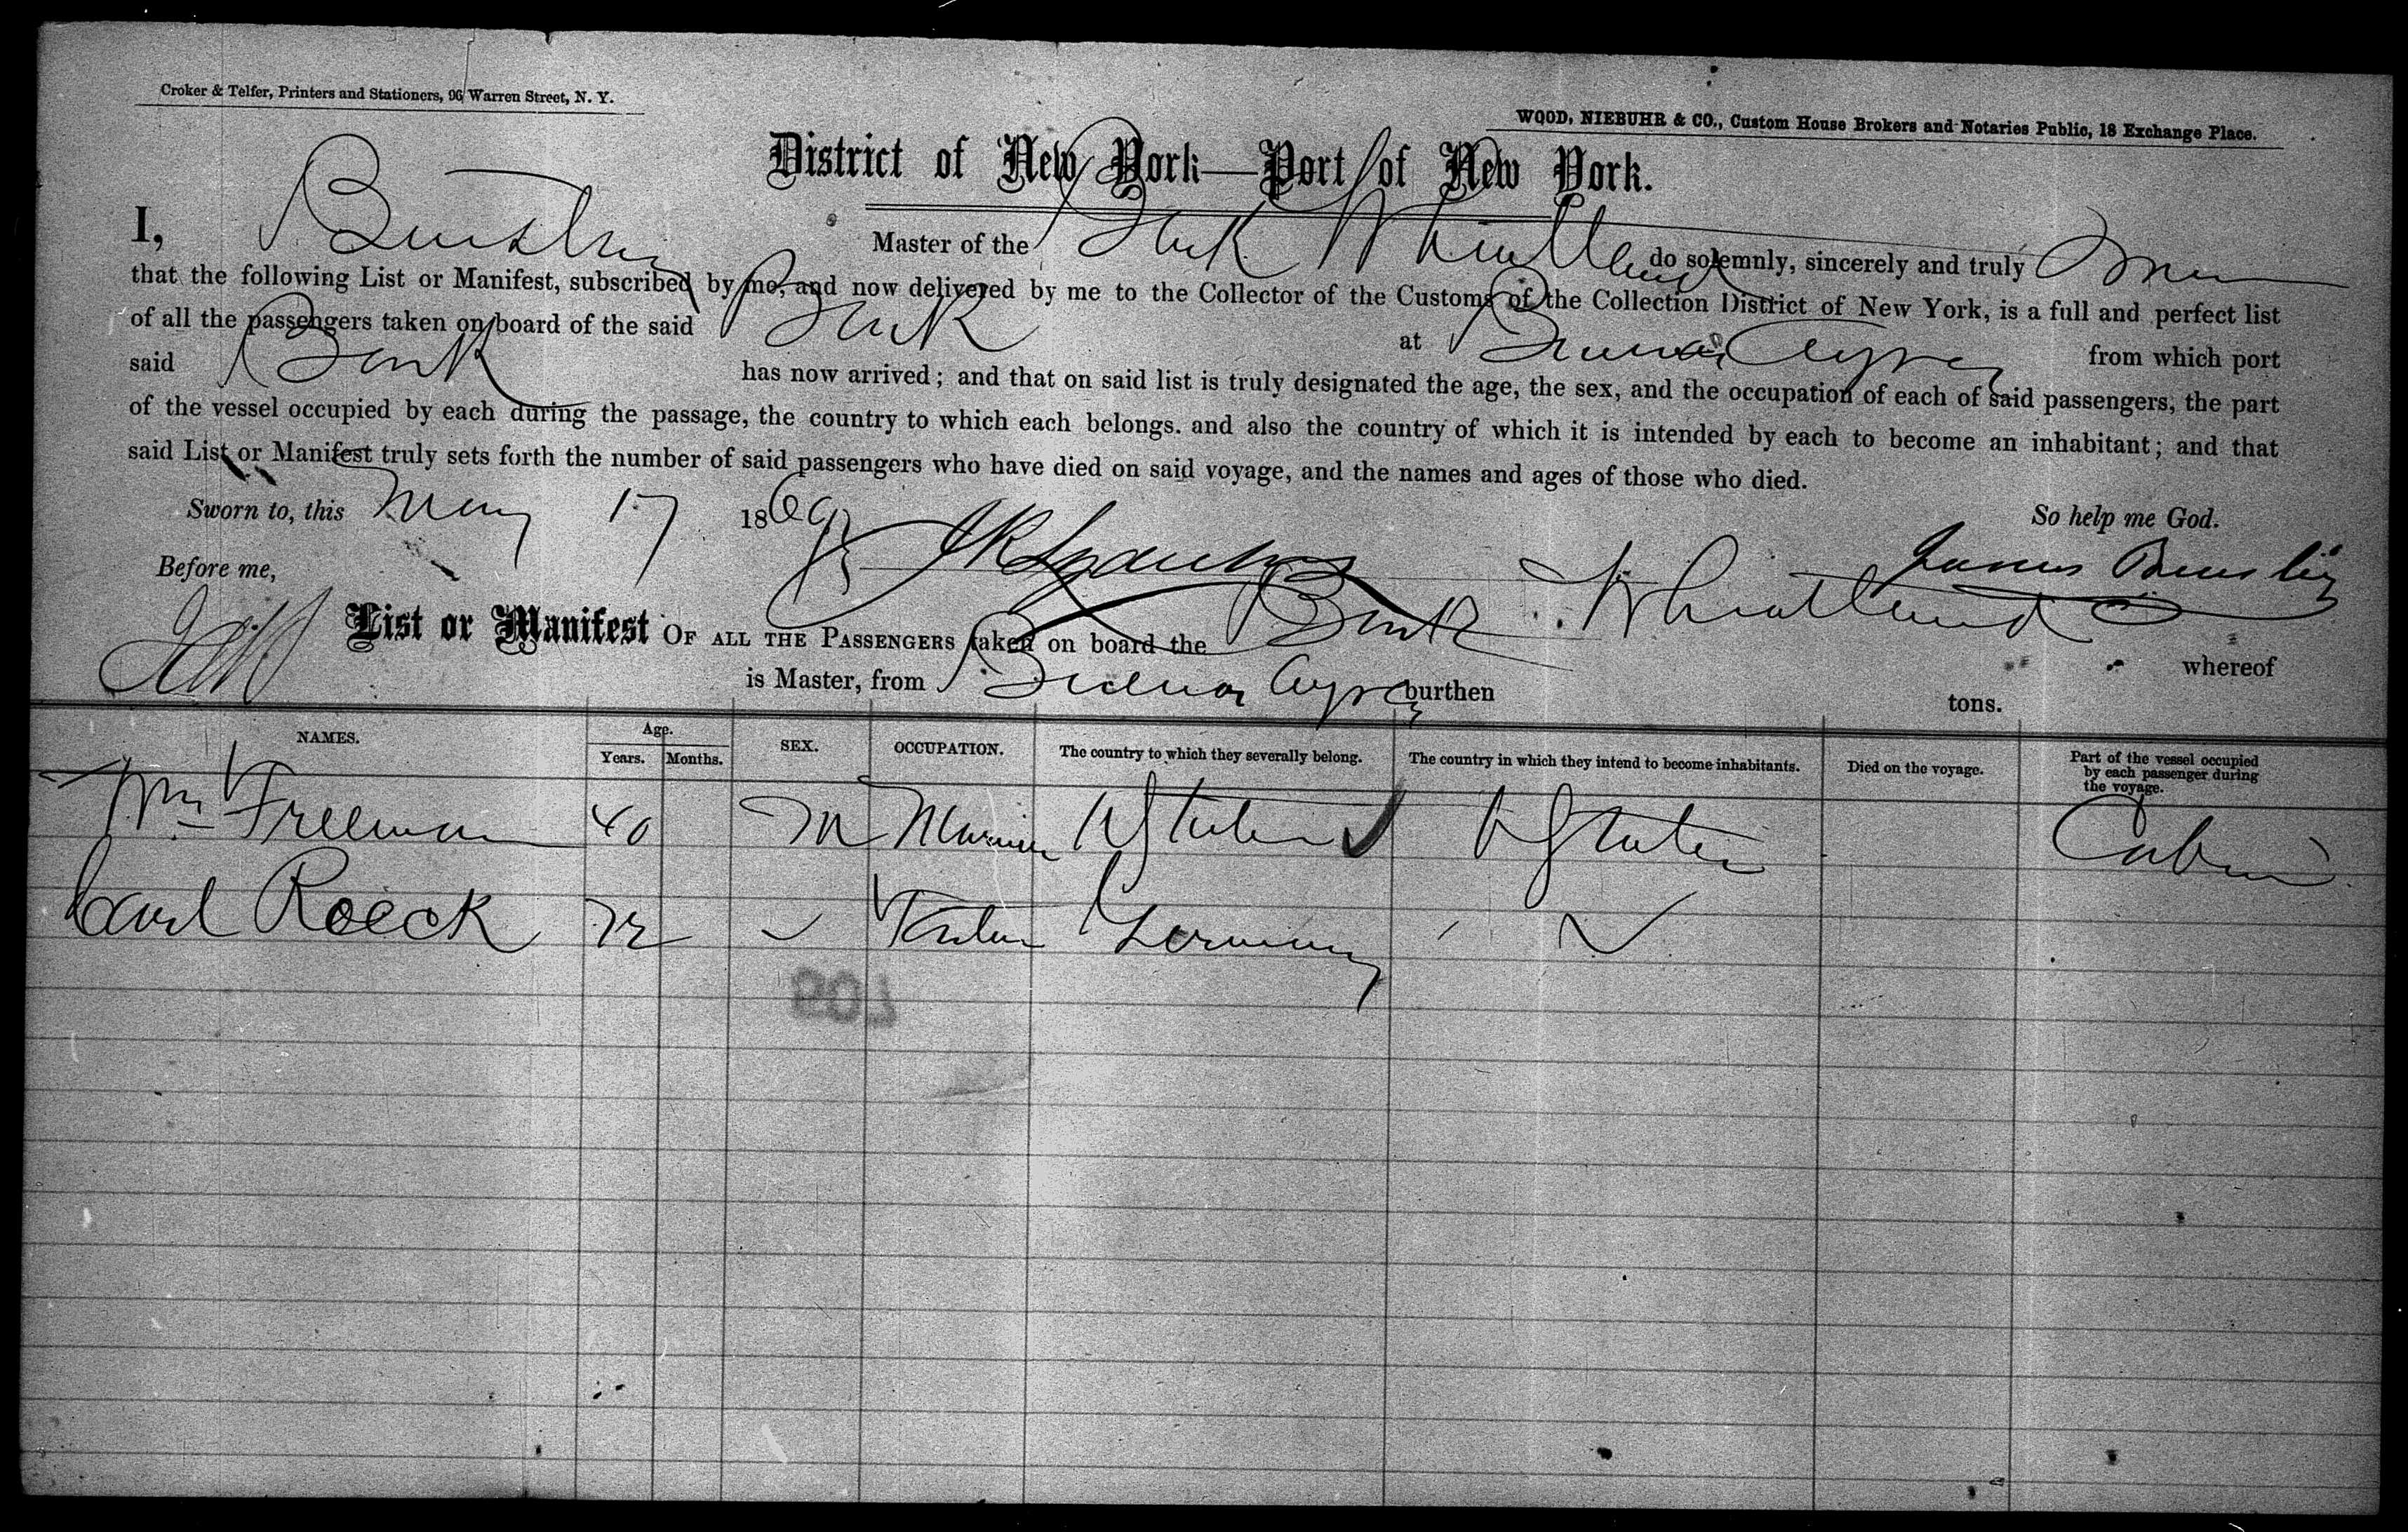 Croker & Telfer, Printers and Stationers, 96 Warren Street, N. Y.
WOOD, NIEBUHR & CO., Custom House Brokers and Notaries Public, 18 Exchange Place.
District of New York—Port of New York.
I, Master of the Bark Wheatland do solemnly, sincerely and truly
that the following List or Manifest, subscribed by me, and now delivered by me to the Collector of the Customs of the Collection District of New York, is a full and perfect list
of all the passengers taken on board of the said Bark at Buenos Ayres from which port
said Bark has now arrived; and that on said list is truly designated the age, the sex, and the occupation of each of said passengers, the part
of the vessel occupied by each during the passage, the country to which each belongs. and also the country of which it is intended by each to become an inhabitant; and that
said List or Manifest truly sets forth the number of said passengers who have died on said voyage, and the names and ages of those who died.
Sworn to, this May 17 1869 So help me God.
Before me, James
List or Manifest OF ALL THE PASSENGERS taken on board the Bark Wheatland whereof
is Master, from Buenos Ayres burthen tons.
NAMES. Age. Years. Months. SEX. OCCUPATION. The country to which they severally belong. The country in which they intend to become inhabitants. Died on the voyage. Part of the vessel occupied by each passenger during the voyage.
Wm Freeman 40 M Mariner U States U States Cabin
Carl Roeck 72 Germany
709